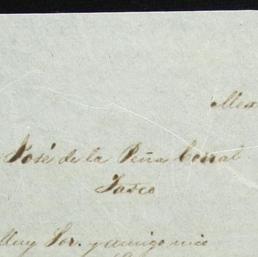 Mex
José de la Peña Corral
Tasco
Muy Sor. y amigo mio